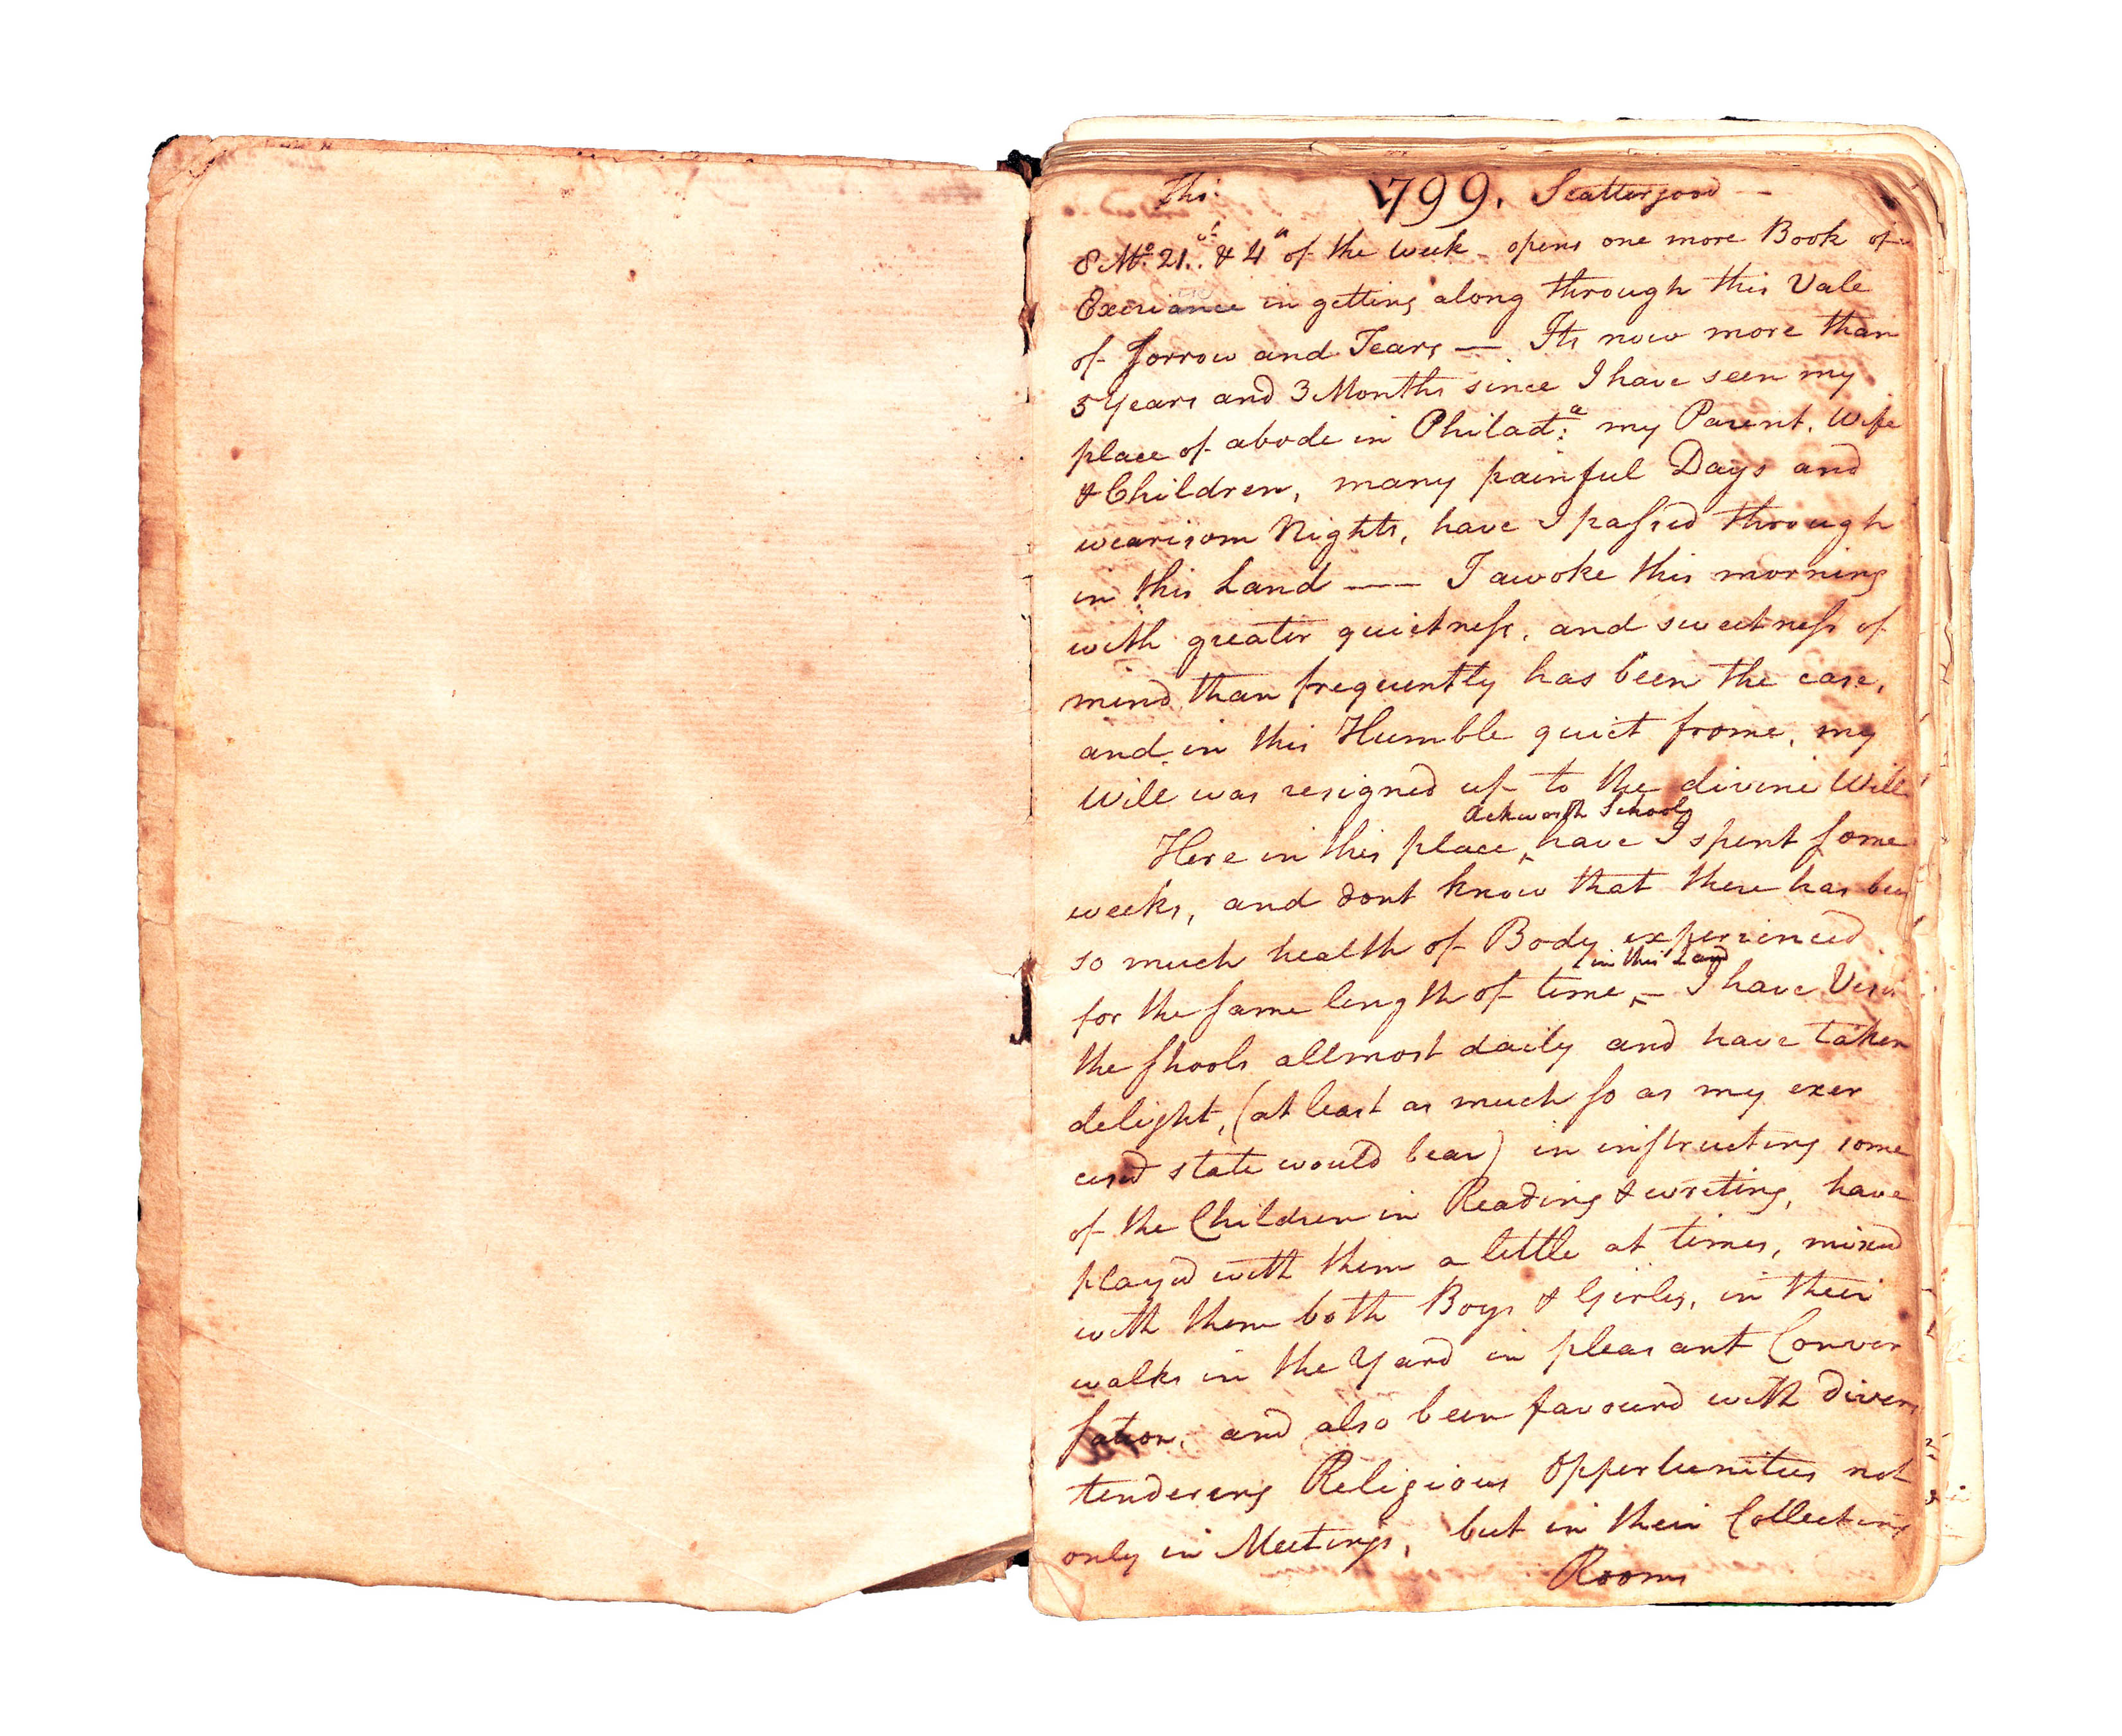 this 1799. Scattergood —
8 Mo. 21st. & 4th of the week - opens one more Book of
Exeriance in getting along through this Vale
of sorrow and Tears — Its now more than
5 Years and 3 Months since I have seen my
place of abode in Philad:a my Parent, Wife
& Children, many painful Days and
wearisom Nights, have I passed through
in this Land —— I awoke this morning
with greater quietness, and sweetness of
mind than frequently has been the case,
and in this Humble quiet frame, my
Will was resigned up to the divine Will
Ackworth School
Here in this place ‸ have I spent some
weeks, and dont know that there has been
so much health of Body experienced
in this Land
for the same length of time ‸ - I have
the shools allmost daily and have taken
delight, (at least as much so as my exer
cisd state would bear) in instructing some
of the Children in Reading & writing, have
playd with them a little at times, mixed
with them both Boys & Girls, in their
walks in the Yard in pleasant Conver
sation, and also been favourd with divers
tendering Religious Oppertunitus not
only in Meetings, but in their Collecting
Rooms